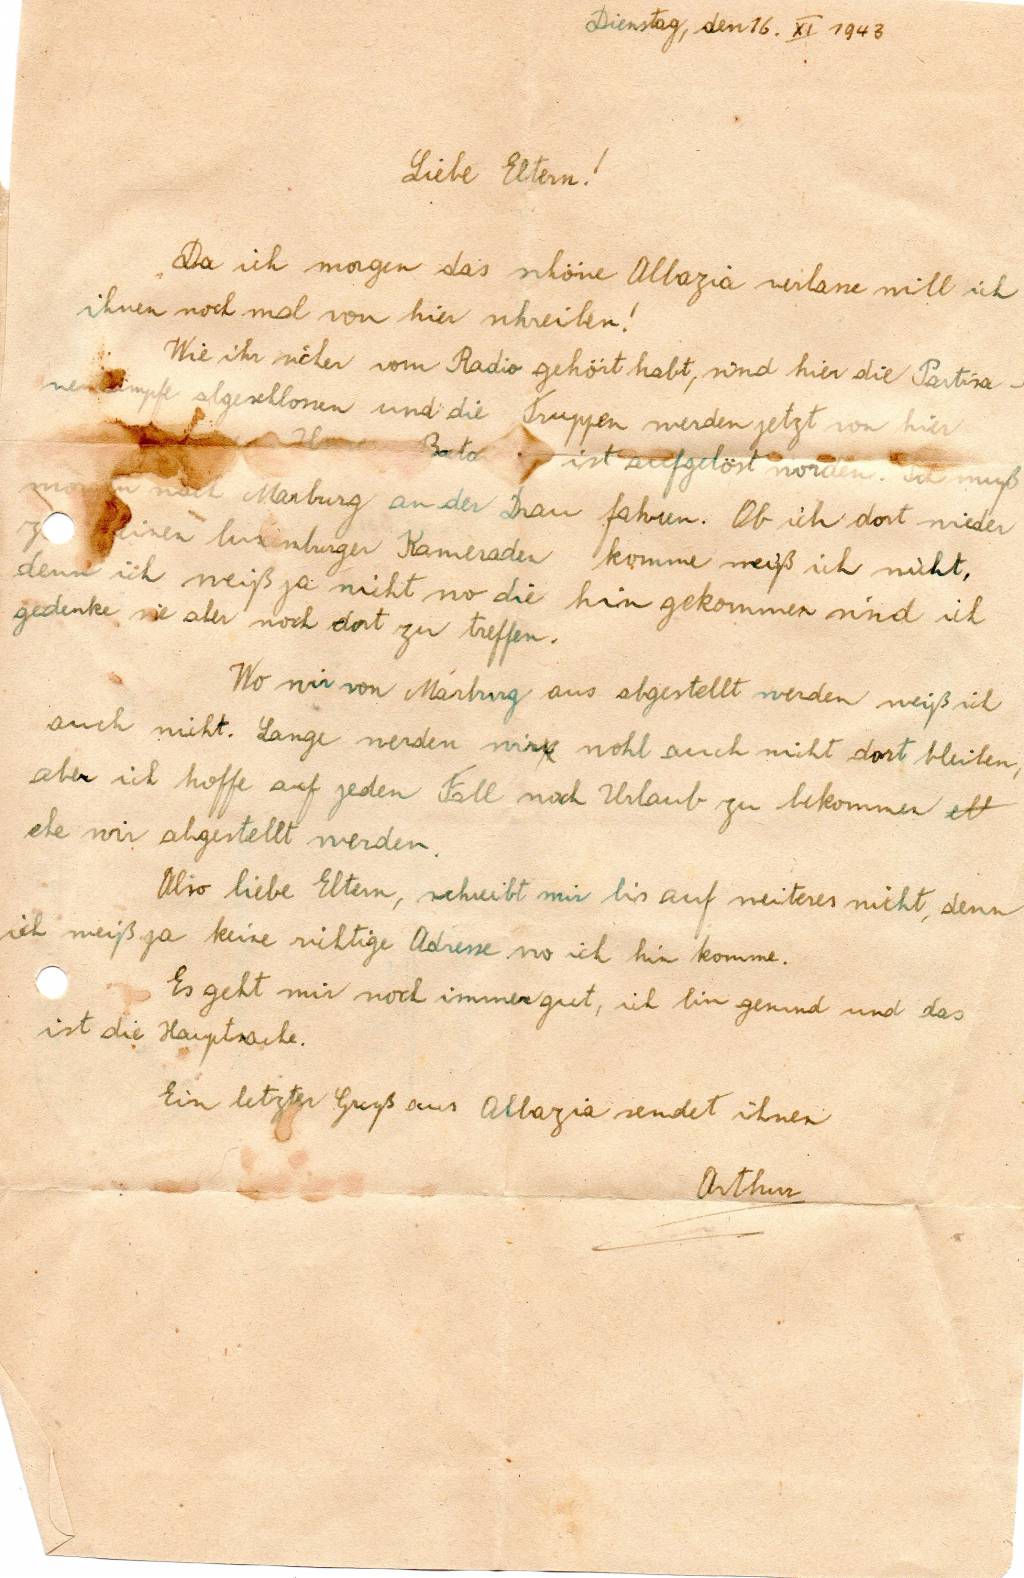 Dienstag, den 16. XI 1943
Liebe Eltern!
Da ich morgen das schöne Abbazia verlasse will ich
ihnen noch mal von hier schreiben!
Wie ihr sicher vom Radio gehört habt, sind hier die Partisa-
nenkämpfe abgeschlossen und die Truppen werden jetzt von hier
ist aufgelöst worden. Ich muß
morgen nach Marburg an der Drau fahren. Ob ich dort wieder
luxemburger Kameraden komme weiß ich nicht,
denn ich weiß ja nicht wo die hin gekommen sind ich
gedenke sie aber noch dort zu treffen.
Wo wir von Marburg aus abgestellt werden weiß ich
auch nicht. Lange werden wir wohl auch nicht dort bleiben,
aber ich hoffe auf jeden Fall noch Urlaub zu bekommen
ehe wir abgestellt werden.
Also liebe Eltern, schreibt mir bis auf weiteres nicht, denn
ich weiß ja keine richtige Adresse wo ich hin komme.
Es geht mir noch immer gut, ich bin gesund und das
ist die Hauptsache.
Ein letzter Gruß aus Abbazia sendet ihnen
Arthur